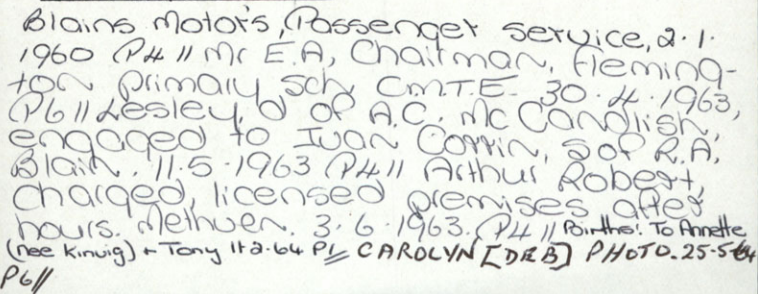 Blains Motors, Passenger service, 2.1.
1960 P4 // Mr E.A, Chairman, Fleming-
ton primary sch CMTE. 30.4.1963,
P6 // Lesley, d of A.C. McCandlish,
engaged to Ivan Corrin, S of R.A,
Blain. 11.5.1963 P4 // Arthur Robert,
charged, licensed premises after
hours. Methven. 3.6.1963. P4 // Births: To Annette
(nee Kinvig) + Tony 11-2-64 P1 // CAROLYN [DEB] PHOTO. 25-5-64
P6 //